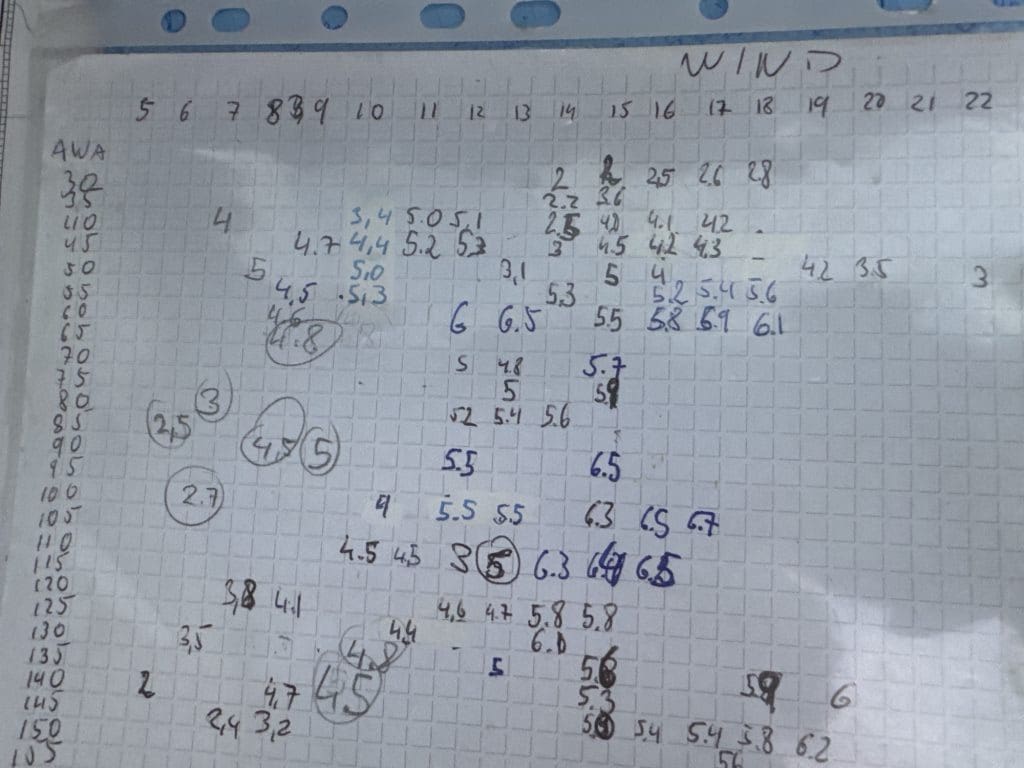 WIND
5 6 7 8 9 10 11 12 13 14 15 16 17 18 19 20 21 22
AWA
30 2 2 2.5 2.6 2.8
35 2.2 3.6
40 4 3,4 5.0 5.1 2.5 4.0 4.1 4.2
45 4.7 4,4 5.2 5.3 3 4.5 4.2 4.3 -
50 5 5.0 3,1 5 4 4.2 3.5 3
55 4,5 5,3 5.3 5.2 5.4 5.6
60 4,6 6 6.5 5.5 5.8 5.9 6.1
65 4.8
70 5 4.8 5.7
75 3 5 5.9
80 2,5 5.2 5.4 5.6
85 4,5 5
90
95 5.5 6.5
100 2.7
105 4 5.5 5.5 6.3 6.5 6.7
110 4.5 4.5
115 5 5 6.3 6.4 6.5
120 3,8 4.1
125 4,6 4.7 5.8 5.8
130 3,5 4.4 6.0
135 5 5.6
140 2 4,7 4.5 5.9 6
145 5.3
150 2,4 3,2 5.0 5.4 5.4 5.8 6.2
105 5.6